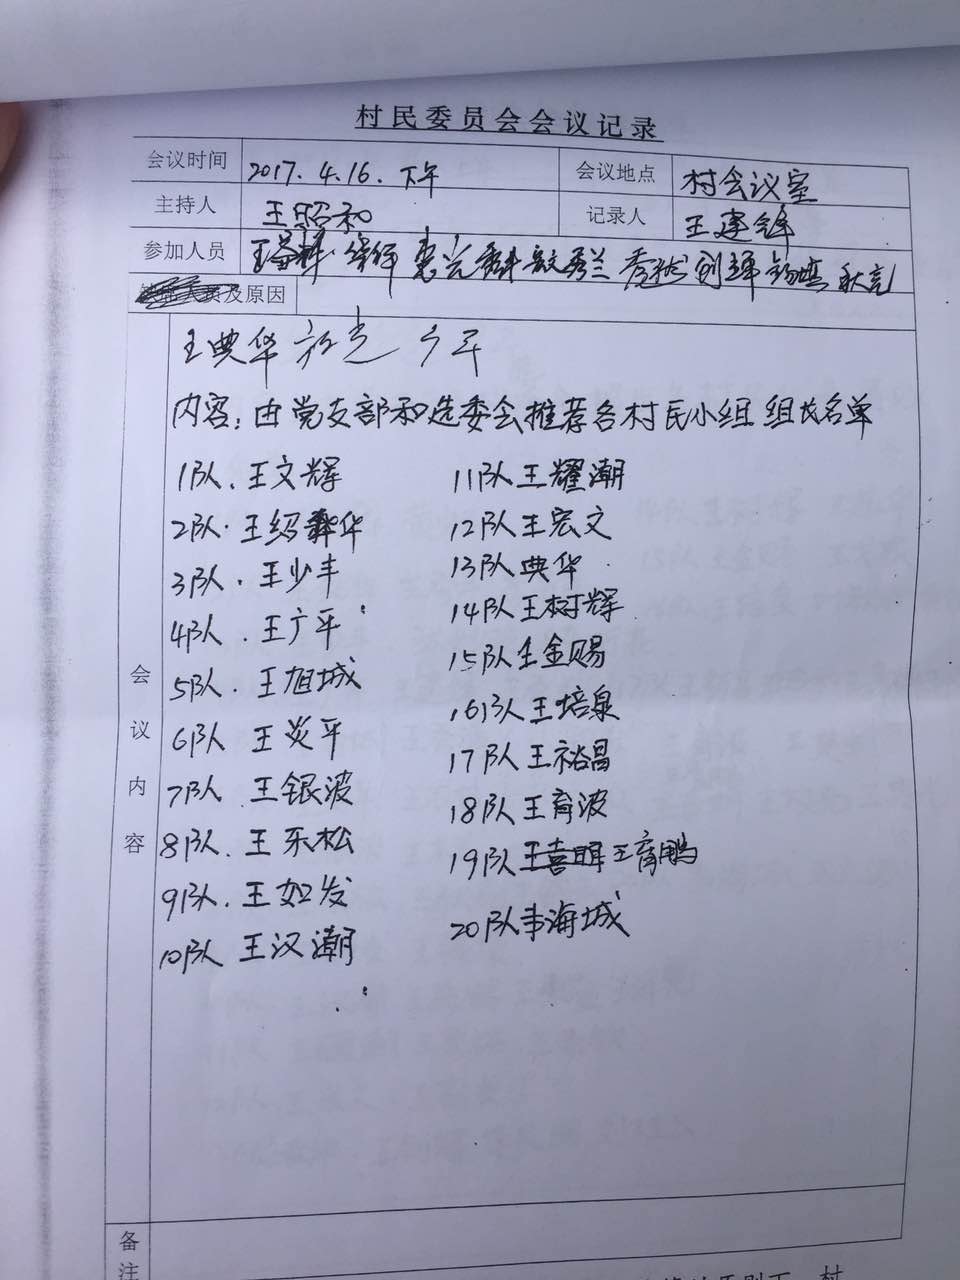 村民委员会会议记录
会议时间 2017.4.16.下午 会议地点 村会议室
主持人 王昭和 记录人 王建锋
参加人员 秀兰 秋亮
及原因
王典华
内容:由党支部和选委会推荐各村民小组组长名单
1队.王文辉 11队王耀潮
2队.王绍华 12队王宏文
3队.王少丰 13队典华
4队.王广平 14队王树辉
5队.王旭城 15队王金赐
6队 王炎平 16队王培泉
7队.王银波 17队王裕昌
8队.王乐松 18队王育波
9队.王如发 19队王喜明王育鹏
10队 王汉潮 20队 海城
会议内容
备注